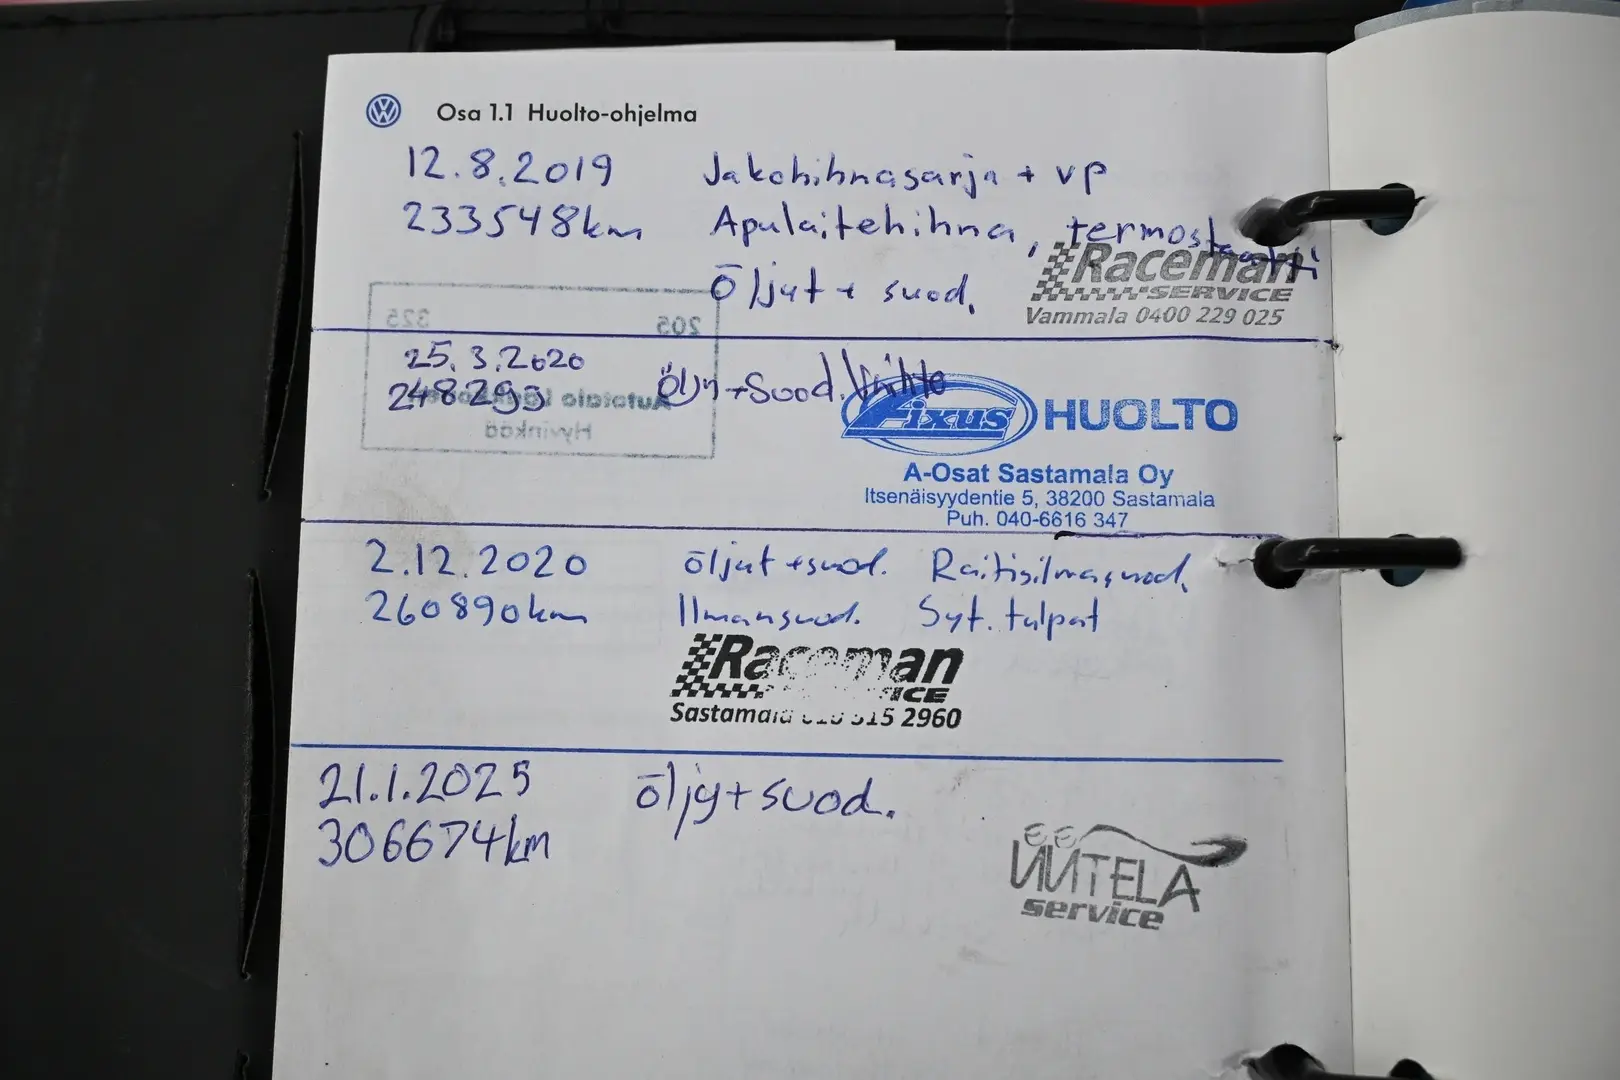 Osa 1.1 Huolto-ohjelma
12.8.2019 Jakohihnasarja + vp
233548km Apulaitehihna, termostaatti
Öljyt + suod.
Raceman
SERVICE
Vammala 0400 229 025
325 205
25.3.2020
Öljy + Suod. Vaihto
Autotalo
Hyvinkää
Fixus HUOLTO
A-Osat Sastamala Oy
Itsenäisyydentie 5, 38200 Sastamala
Puh. 040-6616 347
2.12.2020 öljyt + suod. Raitisilmasuod.
260890km Ilmansuod. Syt. tulpat
Raceman
Sastamala 2960
21.1.2025 öljy + suod.
306674km
UUTELA
service